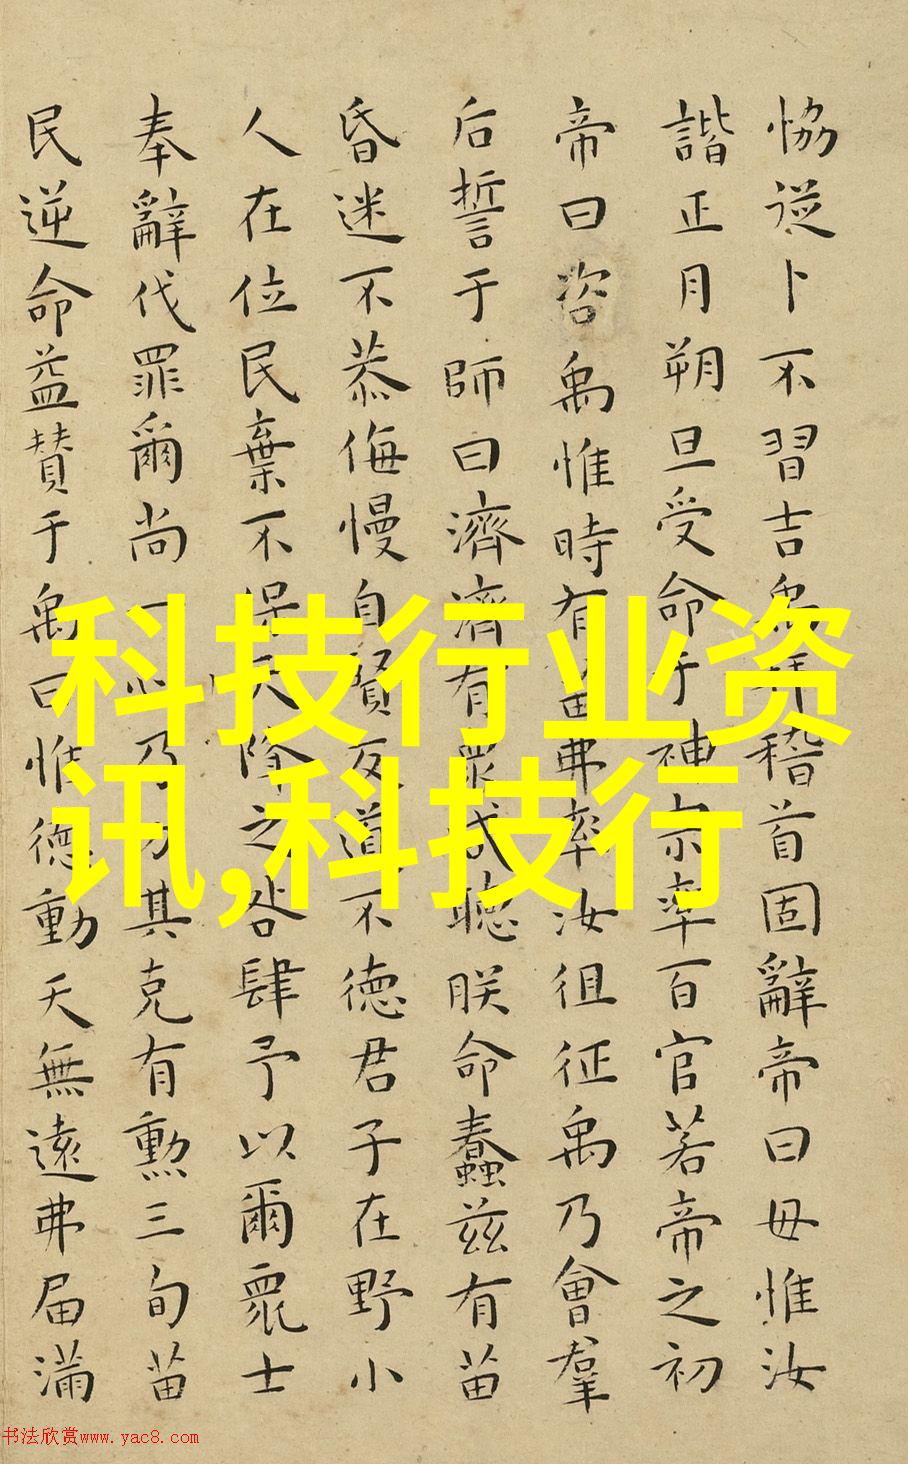 恊從卜不習吉禹拜稽首固辭帝曰毋惟汝
諧正月朔旦受命于神宗率百官若帝之初
帝曰咨禹惟時有苗弗率汝徂征禹乃會羣
后誓于師曰濟濟有眾咸聽朕命蠢茲有苗
昏迷不恭侮慢自賢反道不德君子在野小
人在位民棄不保天降之咎肆予以爾眾士
奉辭伐罪爾尚一心乃力其克有勲三旬苗
民逆命益贊于禹曰惟德動天無遠弗届滿
科技行业资
讯,科技行
书法欣赏www.yac8.com